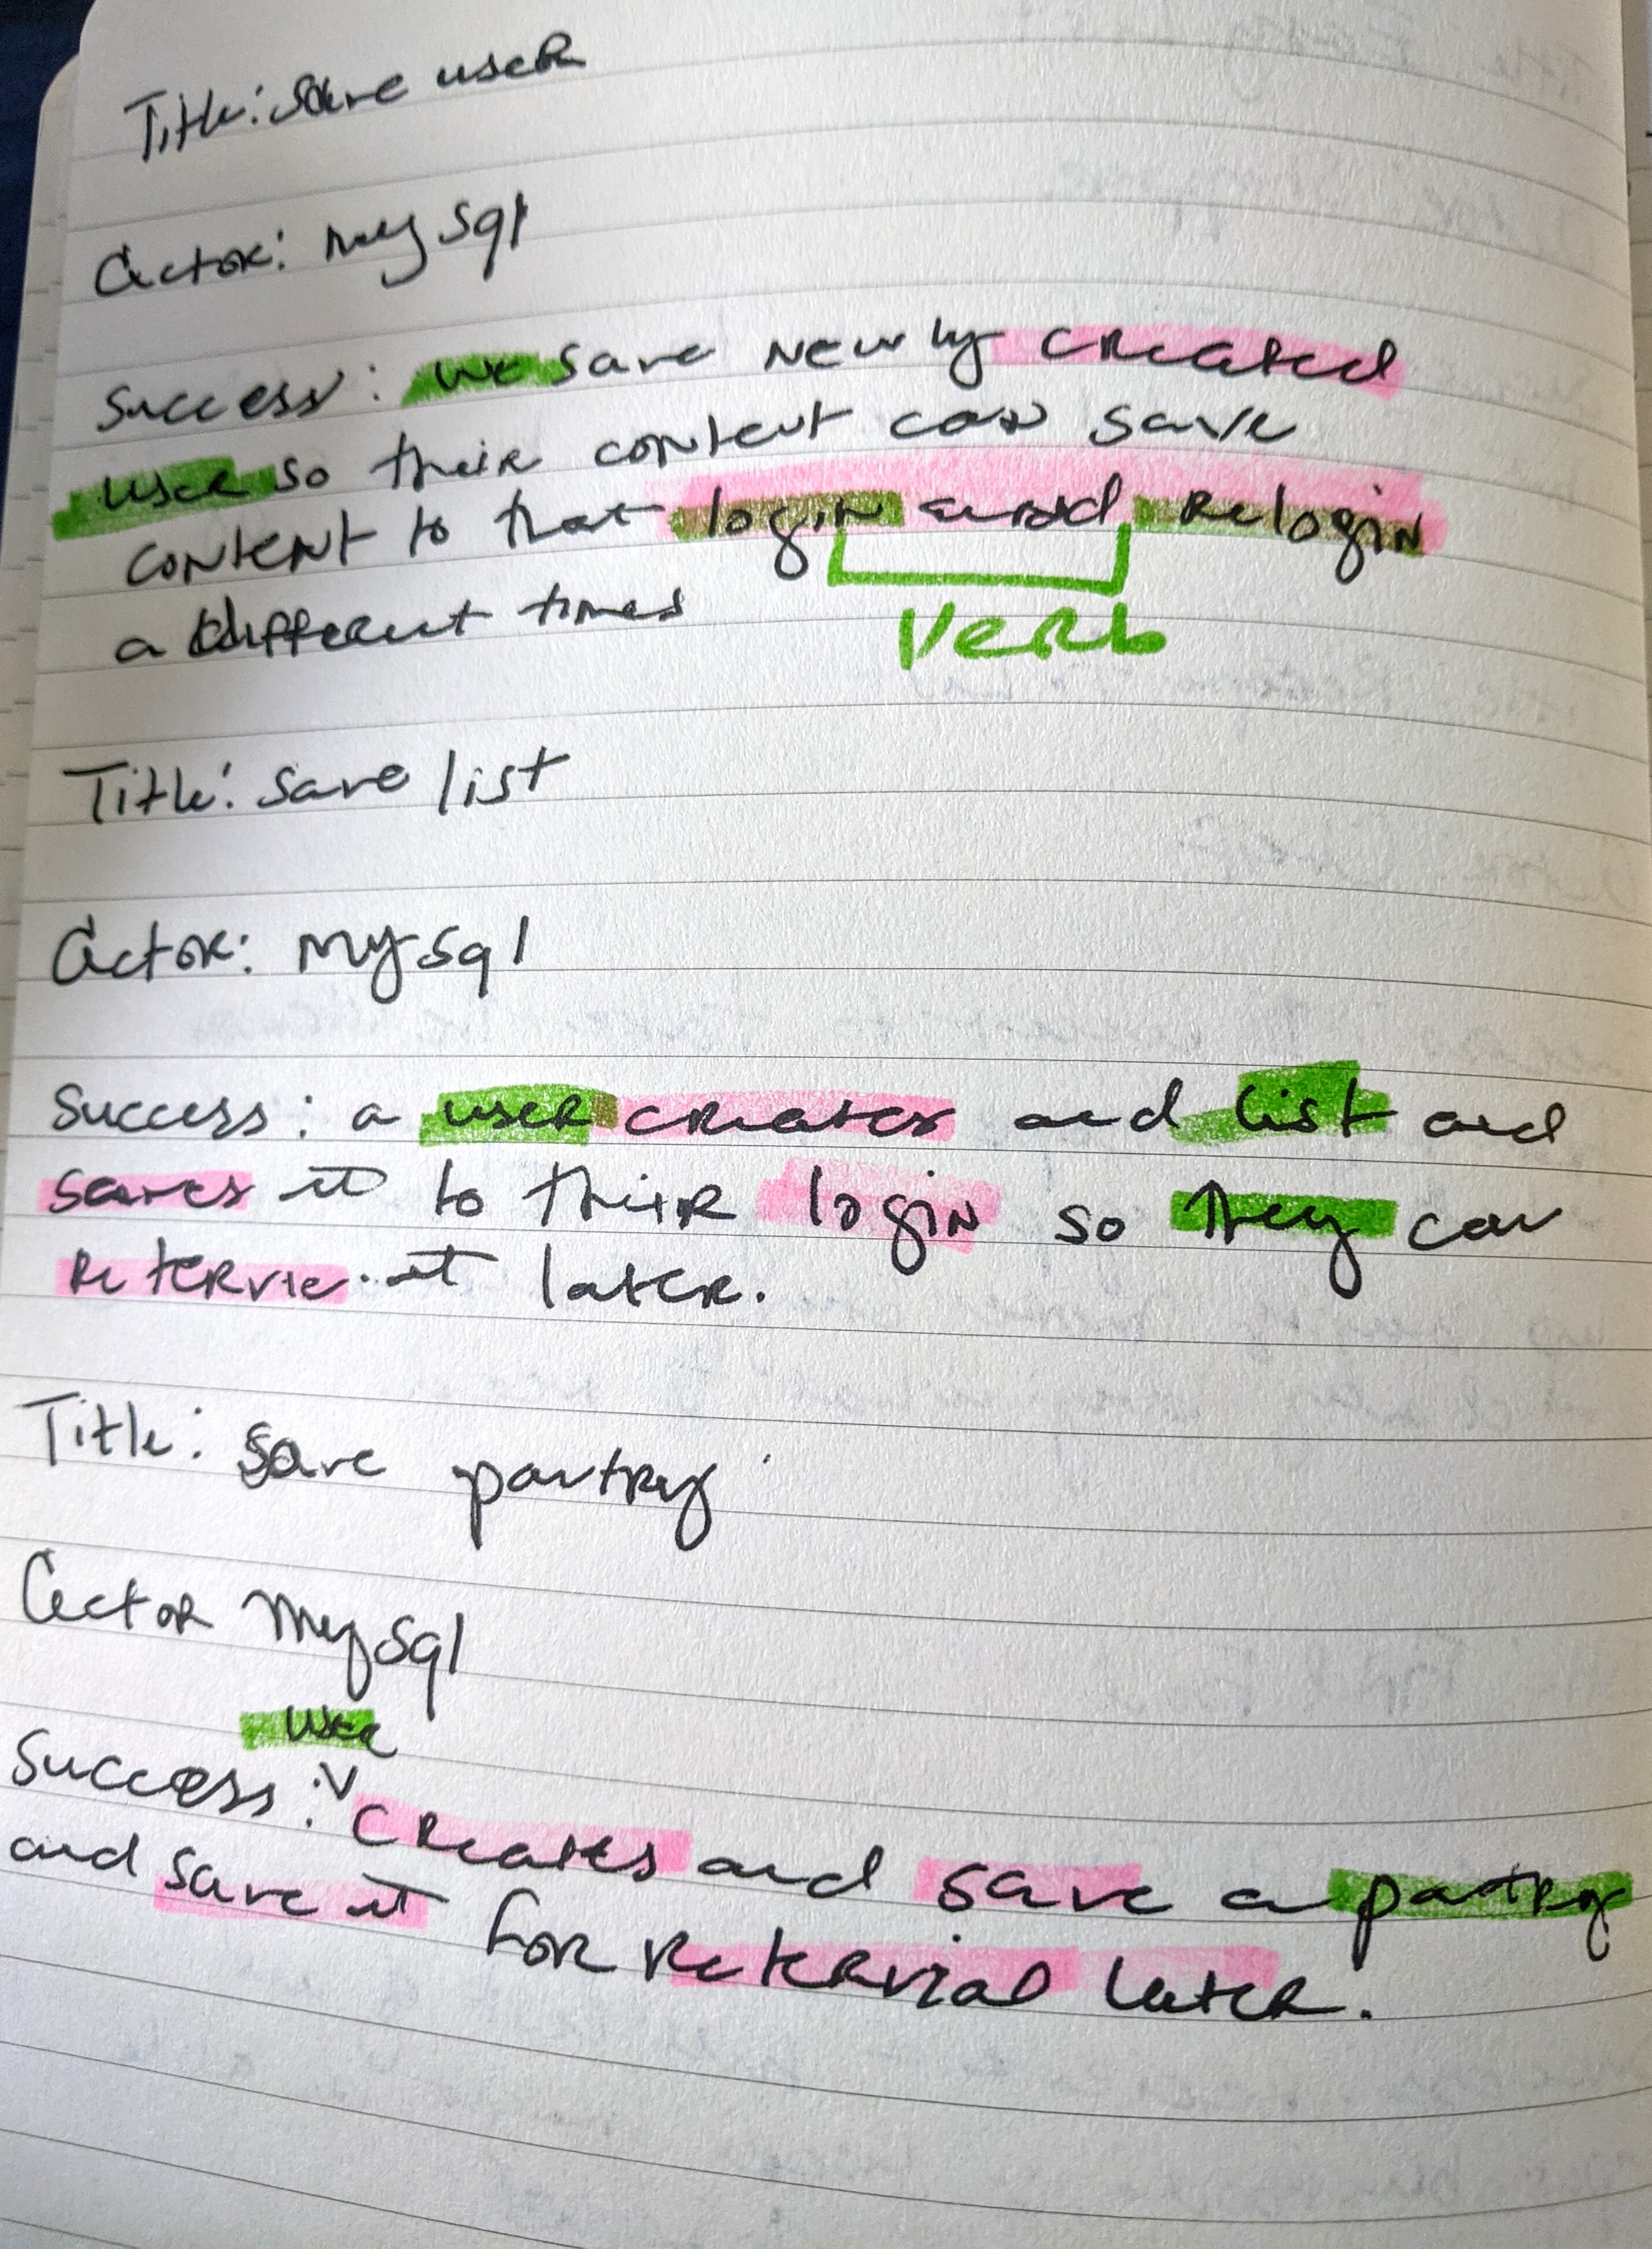 Title: Save user
Actor: mysql
Success: we save newly created
user so their content can save
content to that login and relogin
a different times
verb
Title: save list
Actor: mysql
Success: a user creates and list and
saves it to their login so they can
retervie it later.
Title: Save pantry
Actor mysql
user
Success: creates and save a pantry
and save it for retervial later.